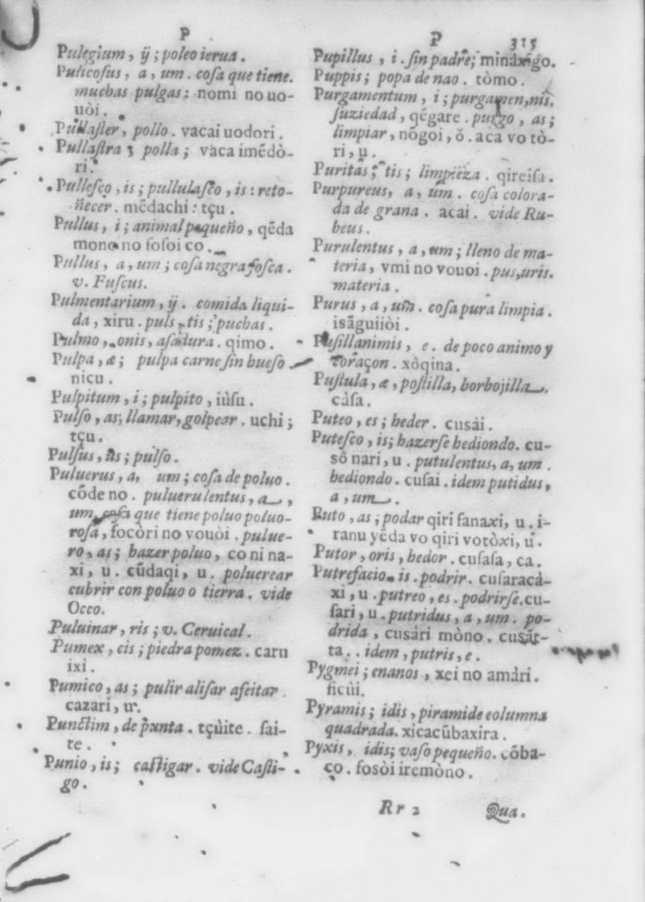 P
Pulegium, ÿ; poleo ierua.
Pulicosus, a, um. cosa que tiene.
muchas pulgas: nomi no uo-
uòi.
Pullaster, pollo. vacai uodori.
Pullastra; polla; vaca imẽdò-
ri.
Pullesco, is; pullulasco, is: reto-
ñecer. mẽdachi: tçu.
Pullus, i; animal pequeño, qẽda
mono no fosoi co.
Pullus, a, um; cosa negra fosca.
v. Fuscus.
Pulmentarium, ÿ. comida liqui-
da, xiru. puls, tis; puchas.
Pulmo, onis, asadura. qimo.
Pulpa, æ; pulpa carne sin bueso
nicu.
Pulpitum, i; pulpito, iùsu.
Pulso, as, llamar, golpear. uchi;
tçu.
Pulsus, us; pulso.
Puluerus, a, um; cosa de poluo.
cõde no. puluerulentus, a,
um, cosa que tiene poluo poluo-
rosa, focòri no vouoi. pulue-
ro, as; hazer poluo, co ni na-
xi, u. cũdaqi, u. poluerear
cubrir con poluo o tierra. vide
Occo.
Puluinar, ris; v. Ceruical.
Pumex, cis; piedra pomez. caru
ixi.
Pumico, as; pulir alisar afeitar.
cazari, u.
Punctim, de punta. tçùite. sai-
te.
Punio, is; castigar. vide Casti-
go.
P 315
Pupillus, i. sin padre; minaxigo.
Puppis; popa de nao. tòmo.
Purgamentum, i; purgamen, nis.
suziedad, qẽgare. purgo, as;
limpiar, nõgoi, ǒ. aca vo tò-
ri, u.
Puritas, tis; limpieza. qireisa.
Purpureus, a, um. cosa colora-
da de grana. acai. vide Ru-
beus.
Purulentus, a, um; lleno de ma-
teria, vmi no vouoi. pus, uris.
materia.
Purus, a, um. cosa pura limpia.
isãguiiòi.
Pusillanimis, e. de poco animo y
coraçon. xòqina.
Pustula, æ, postilla, borbojilla.
càsa.
Puteo, es; heder. cusài.
Putesco, is; hazerse hediondo. cu-
sô nari, u. putulentus, a, um.
hediondo. cusai. idem putidus,
a, um.
Puto, as; podar qiri sanaxi, u. i-
ranu yẽda vo qiri votòxi, u.
Putor, oris, hedor. cusasa, ca.
Putrefacio. is. podrir. cusaracà-
xi, u. putreo, es. podrirse. cu-
sari, u. putridus, a, um. po-
drida, cusàri mòno. cusàt-
ta. idem, putris, e.
Pygmei; enanos, xei no amàri.
ficùi.
Pyramis; idis, piramide columna
quadrada. xicacũbaxira.
Pyxis, idis; vaso pequeño. cõba-
co. fosòi iremòno.
Rr 2 Qua.